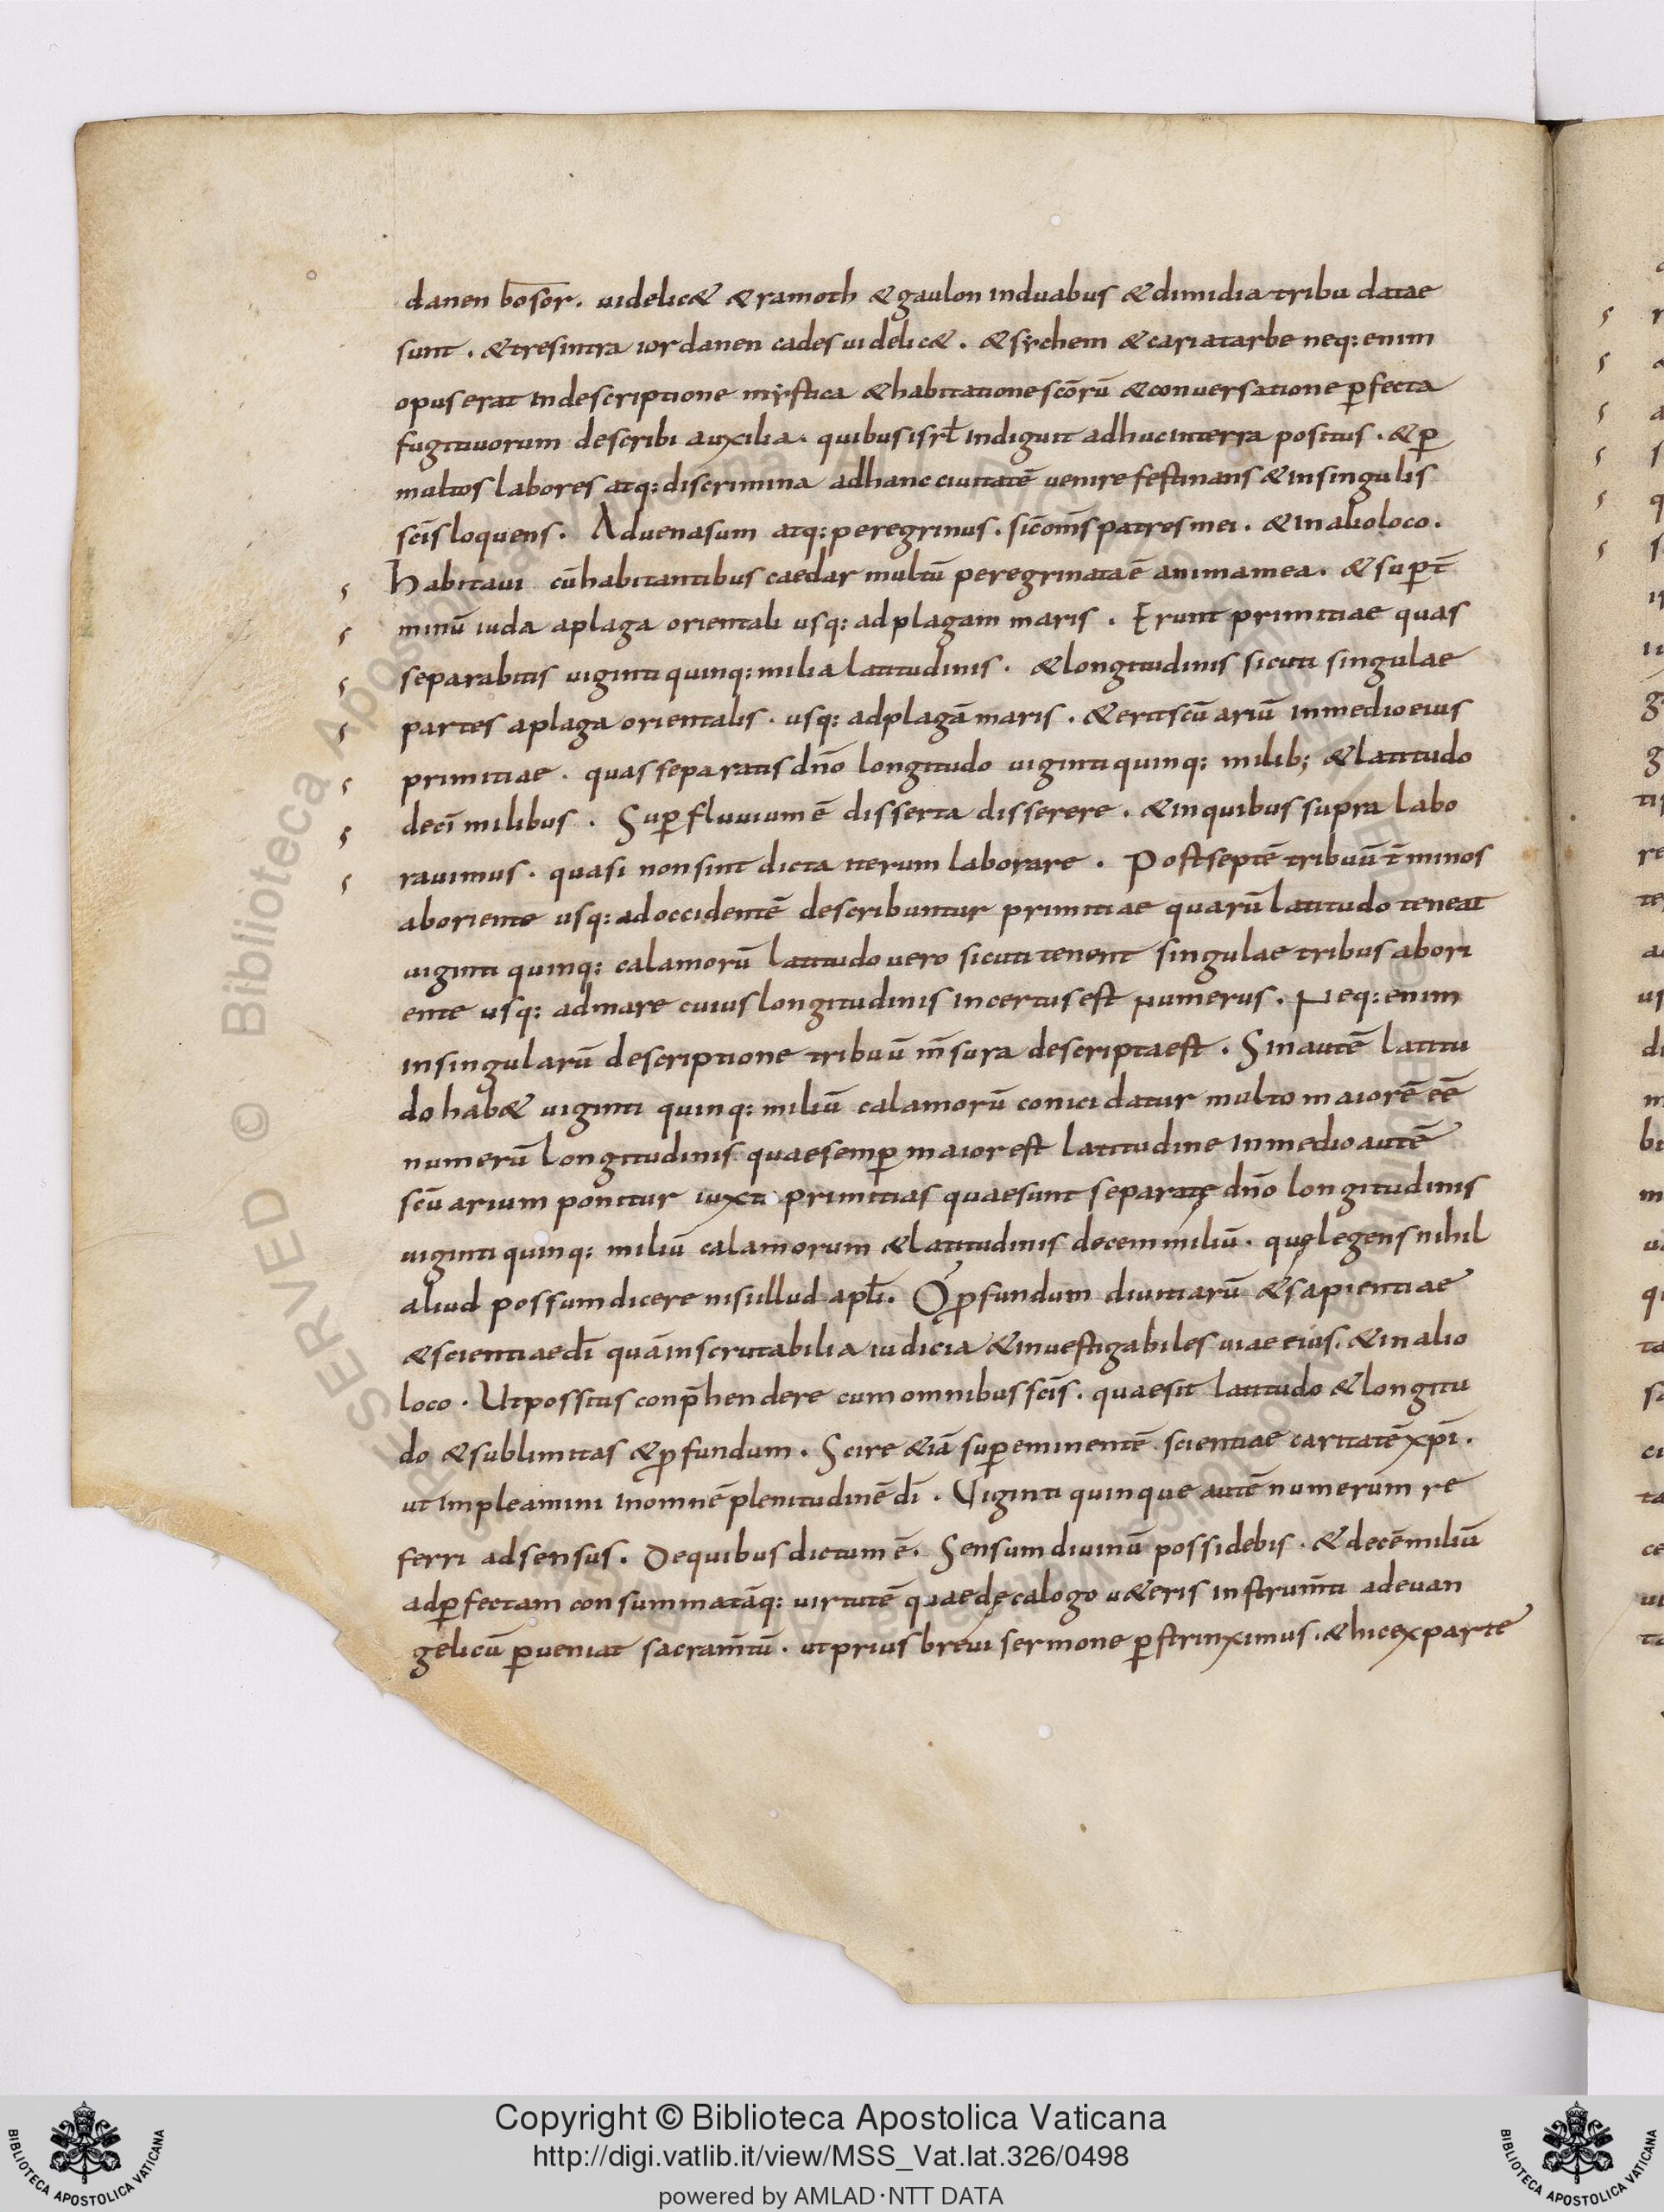 danen bosor. uidelic& &ramoth &gaulon induabus &dimidia tribu datae
sunt. &tresintra iordanen cades uidelic&. &sẏchem &cariatarbe neq: enim
opus erat indescriptione mẏstica &habitatione scōrū &conuersatione ꝑfecta
fugitiuorum describi auxilia. quibus isrł indiguit adhuc interra positus. &ꝑ
multos labores atq: discrimina adhanc ciuitatē uenire festinans &insingulis
scīs loquens. Aduenasum atq: peregrinus. sic̄ om̄s patres mei. &inalioloco.
Habitaui cū habitantibus caedar multū peregrinata ē animamea. &suꝑ t̄
minū iuda aplaga orientali usq: adplagam maris. Erunt primitiae quas
separabitis uiginti quinq: milia latitudinis. &longitudinis sicuti singulae
partes aplaga orientalis. usq: adplagā maris. &erit scūariū inmedioeius
primitiae. quas separatis dn̄o longitudo uiginti quinq: milib; &latitudo
decī milibus. Suꝑfluuium ē disserta disserere. &inquibus supra labo
rauimus. quasi nonsint dicta iterum laborare. Postseptē tribuū t̄minos
aboriente usq: adoccidentē describuntur primitiae quarū latitudo teneat
uiginti quinq: calamorū latitudo uero sicuti tenent singulae tribus abori
ente usq: admare cuius longitudinis incertus est numerus. Neq: enim
insingularū descriptione tribuū m̄sura descriptaest. Sin autē latitu
do hab& uiginti quinq: miliū calamorū conici datur multo maiorē eē
numerū longitudinis quae semꝑ maior est latitudine inmedio autē
scūarium ponitur iuxta primitias quaesunt separatę dn̄o longitudinis
uiginti quinq: miliū calamorum &latitudinis decem miliū. quę legens nihil
aliud possum dicere nisi illud apłi. O ꝓfundum diuitiarū &sapientiae
&scientiae dī quā inscrutabilia iudicia &inuestigabiles uiae eius. &in alio
loco. Ut possitis conp̄hendere cum omnibus scīs. quaesit latitudo &longitu
do &sublimitas &ꝓfundum. Scire &iā suꝑeminentē scientiae caritatē xp̄i.
ut impleamini inomnē plenitudinē dī. Uiginti quinque autē numerum re
ferri adsensus. Dequibus dictum ē. Sensum diuinū possidebis. &decē miliū
adꝑfectam consummatāq: uirtutē quae dęcalogo u&eris instrum̄ti adeuan
gelicū ꝑueniat sacram̄tū. ut prius breui sermone ꝑstrinximus. &hic exparte
Copyright © Biblioteca Apostolica Vaticana
http://digi.vatlib.it/view/MSS_Vat.lat.326/0498
powered by AMLAD·NTT DATA